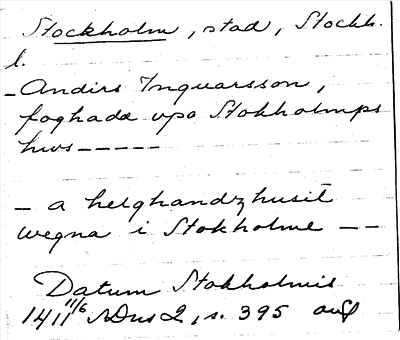 Stockholm, stad, Stockh.
l.
- Andirs Inguarsson,
foghadæ vpa Stokholmps
hws -----
- a helghandzhusit
wegna i Stokholme --
Datum Stokholmis
1411 11/6 SDns 2, s. 395